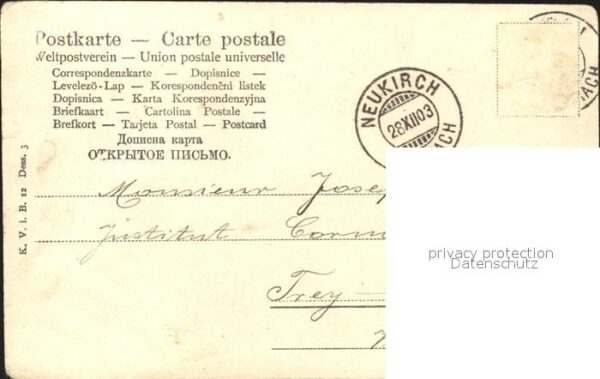 Postkarte — Carte postale
Weltpostverein — Union postale universelle
Correspondenzkarte — Dopisnice —
Levelező-Lap — Korespondenční listek
Dopisnica — Karta Korespondenzyjna
Briefkaart — Cartolina Postale —
Brefkort — Tarjeta Postal — Postcard
Дописна карта
ОТКРЫТОЕ ПИСЬМО.
NEUKIRCH
28.XII.03
ACH
ACH
K. V. i. B. 12 Dess. 3
Monsieur Josep
Institut Corm
Trey
privacy protection
Datenschutz